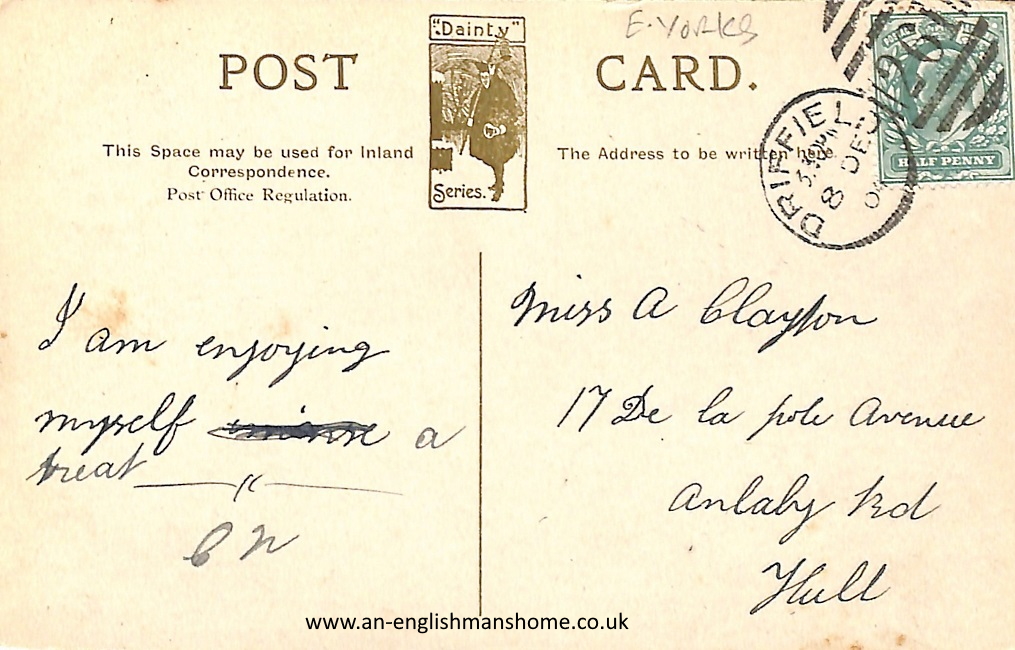 E. Yorks
POST CARD.
"Dainty"
Series.
This Space may be used for Inland
Correspondence.
Post Office Regulation.
The Address to be written here.
DRIFFIELD
8 DE
HALF PENNY
I am enjoying
myself a
treat
Miss A Clayton
17 De la pole Avenue
Anlaby Rd
Hull
www.an-englishmanshome.co.uk